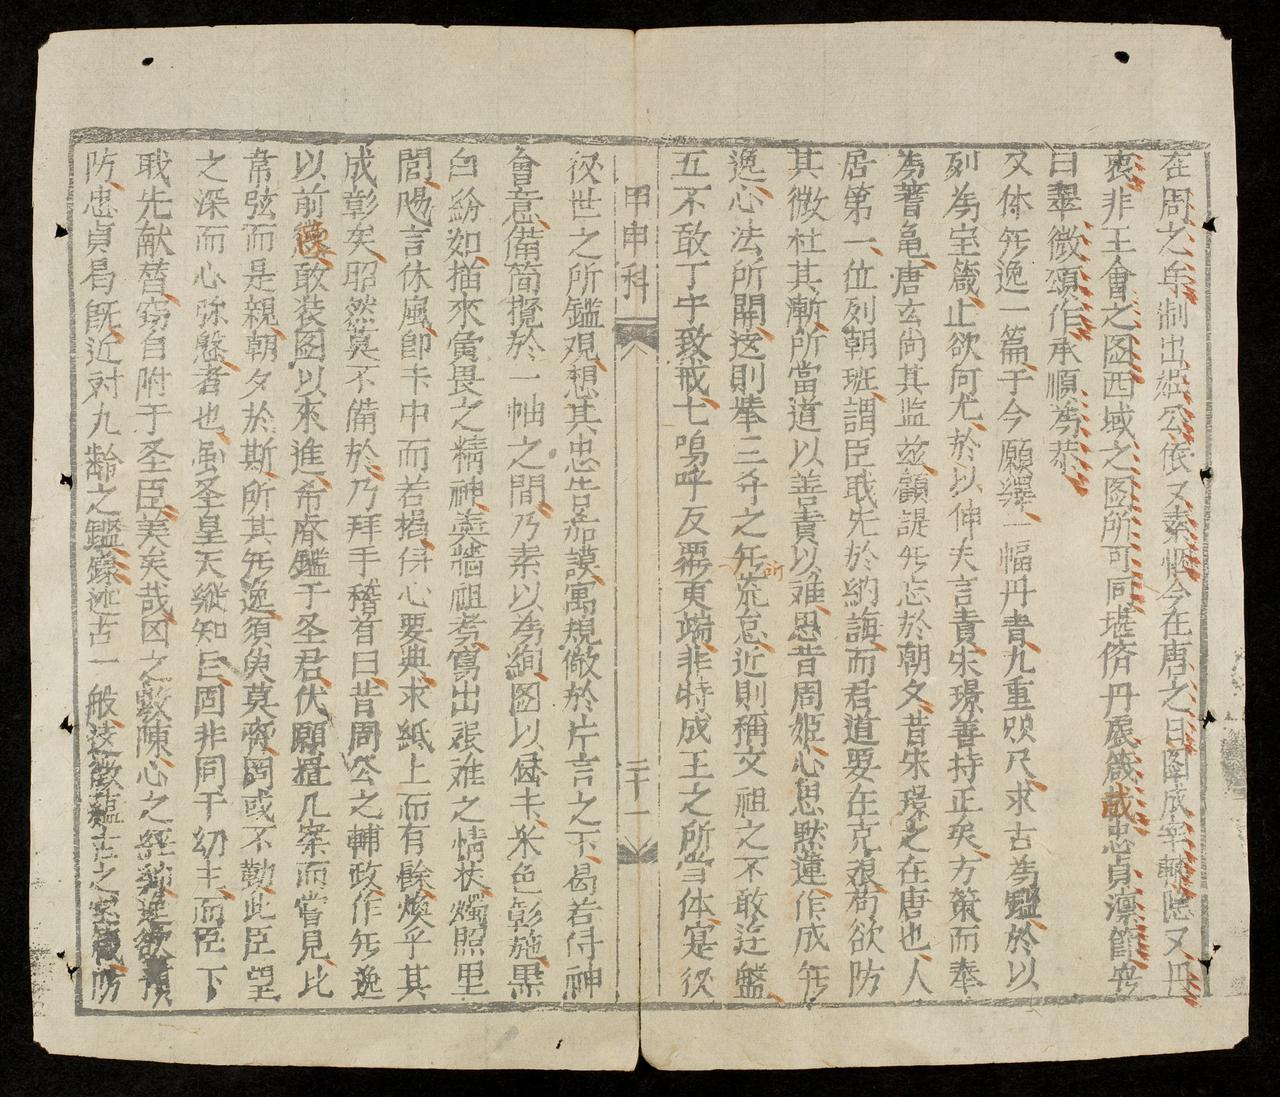 在周之年制出姬公依又素恆今在唐之日图成宋輔隠又丑
衷非王會之图西域之图所可同堪俻丹扆箴誠忠貞凛節芸
曰翠微頌作承順為恭
又体無逸一篇于今願繹一幅丹青九重咫尺求古為鑑於以
列為宝箴止欲何尤於以伸夫言責宋璟善持正矣方策而奉
為蓍亀唐玄尚其监兹顧諟無忘於朝夕昔宋璟之在唐也人
居第一位列朝班謂臣戢先於納誨而君道要在克艱苟欲防
其微杜其漸所當道以善責以难思昔周姬心思黙運作成無
逸心法所開逸則捧三夲之無荒怠近則稱文祖之不敢迄盤
五不敢丁宁致戒七嗚呼反覆更端非特成王之所当体寔後
甲申科 二十一
後世之所鑑观想其忠告嘉謨寓規儆於片言之下曷若得神
會意備简攬於一帙之間乃素以為絢图以俻夫米色彰施黒
白紛如描來寅畏之精神羹牆祖考寫出艰难之情状燭照里
閭颺言休風即卡中而若揭保心要典求紙上而有餘煥乎其
成彰矣昭然莫不備於乃拜手稽首曰昔周公之輔政作無逸
以前懷敢装图以來進希睿鑑于圣君伏願置几案而嘗見比
韋弦而是親朝夕於斯所其無逸須臾莫齊罔或不勤此臣望
之深而心弥慇者也虽圣皇天縱知臣固非同于幼主而臣下
戢先献替窃自附于圣臣美矣哉因之敷陳心之
防忠貞曷既近对九齢之鑑錄述古一般